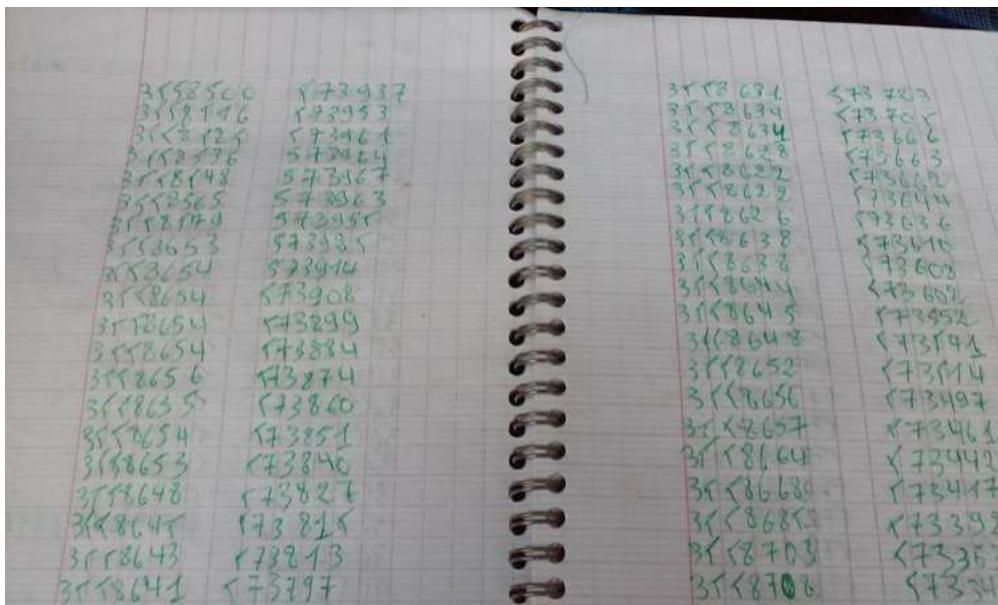 3558500 573937
3558516 573953
3558525 573961
3558536 573964
3558548 573967
3558565 573963
3558579 573955
3558653 573925
3558654 573914
3558654 573908
3558654 573899
3558654 573884
3558656 573874
3558655 573860
3558654 573851
3558653 573840
3558648 573827
3558645 573815
3558643 573813
3558641 573797
3558631 573723
3558634 573705
3558634 573666
3558628 573663
3558622 573662
3558622 573644
3558626 573636
3558638 573616
3558638 573608
3558644 573602
3558645 573552
3558648 573541
3558652 573514
3558656 573497
3558657 573461
3558664 573442
3558668 573417
3558685 573392
3558703
3558708